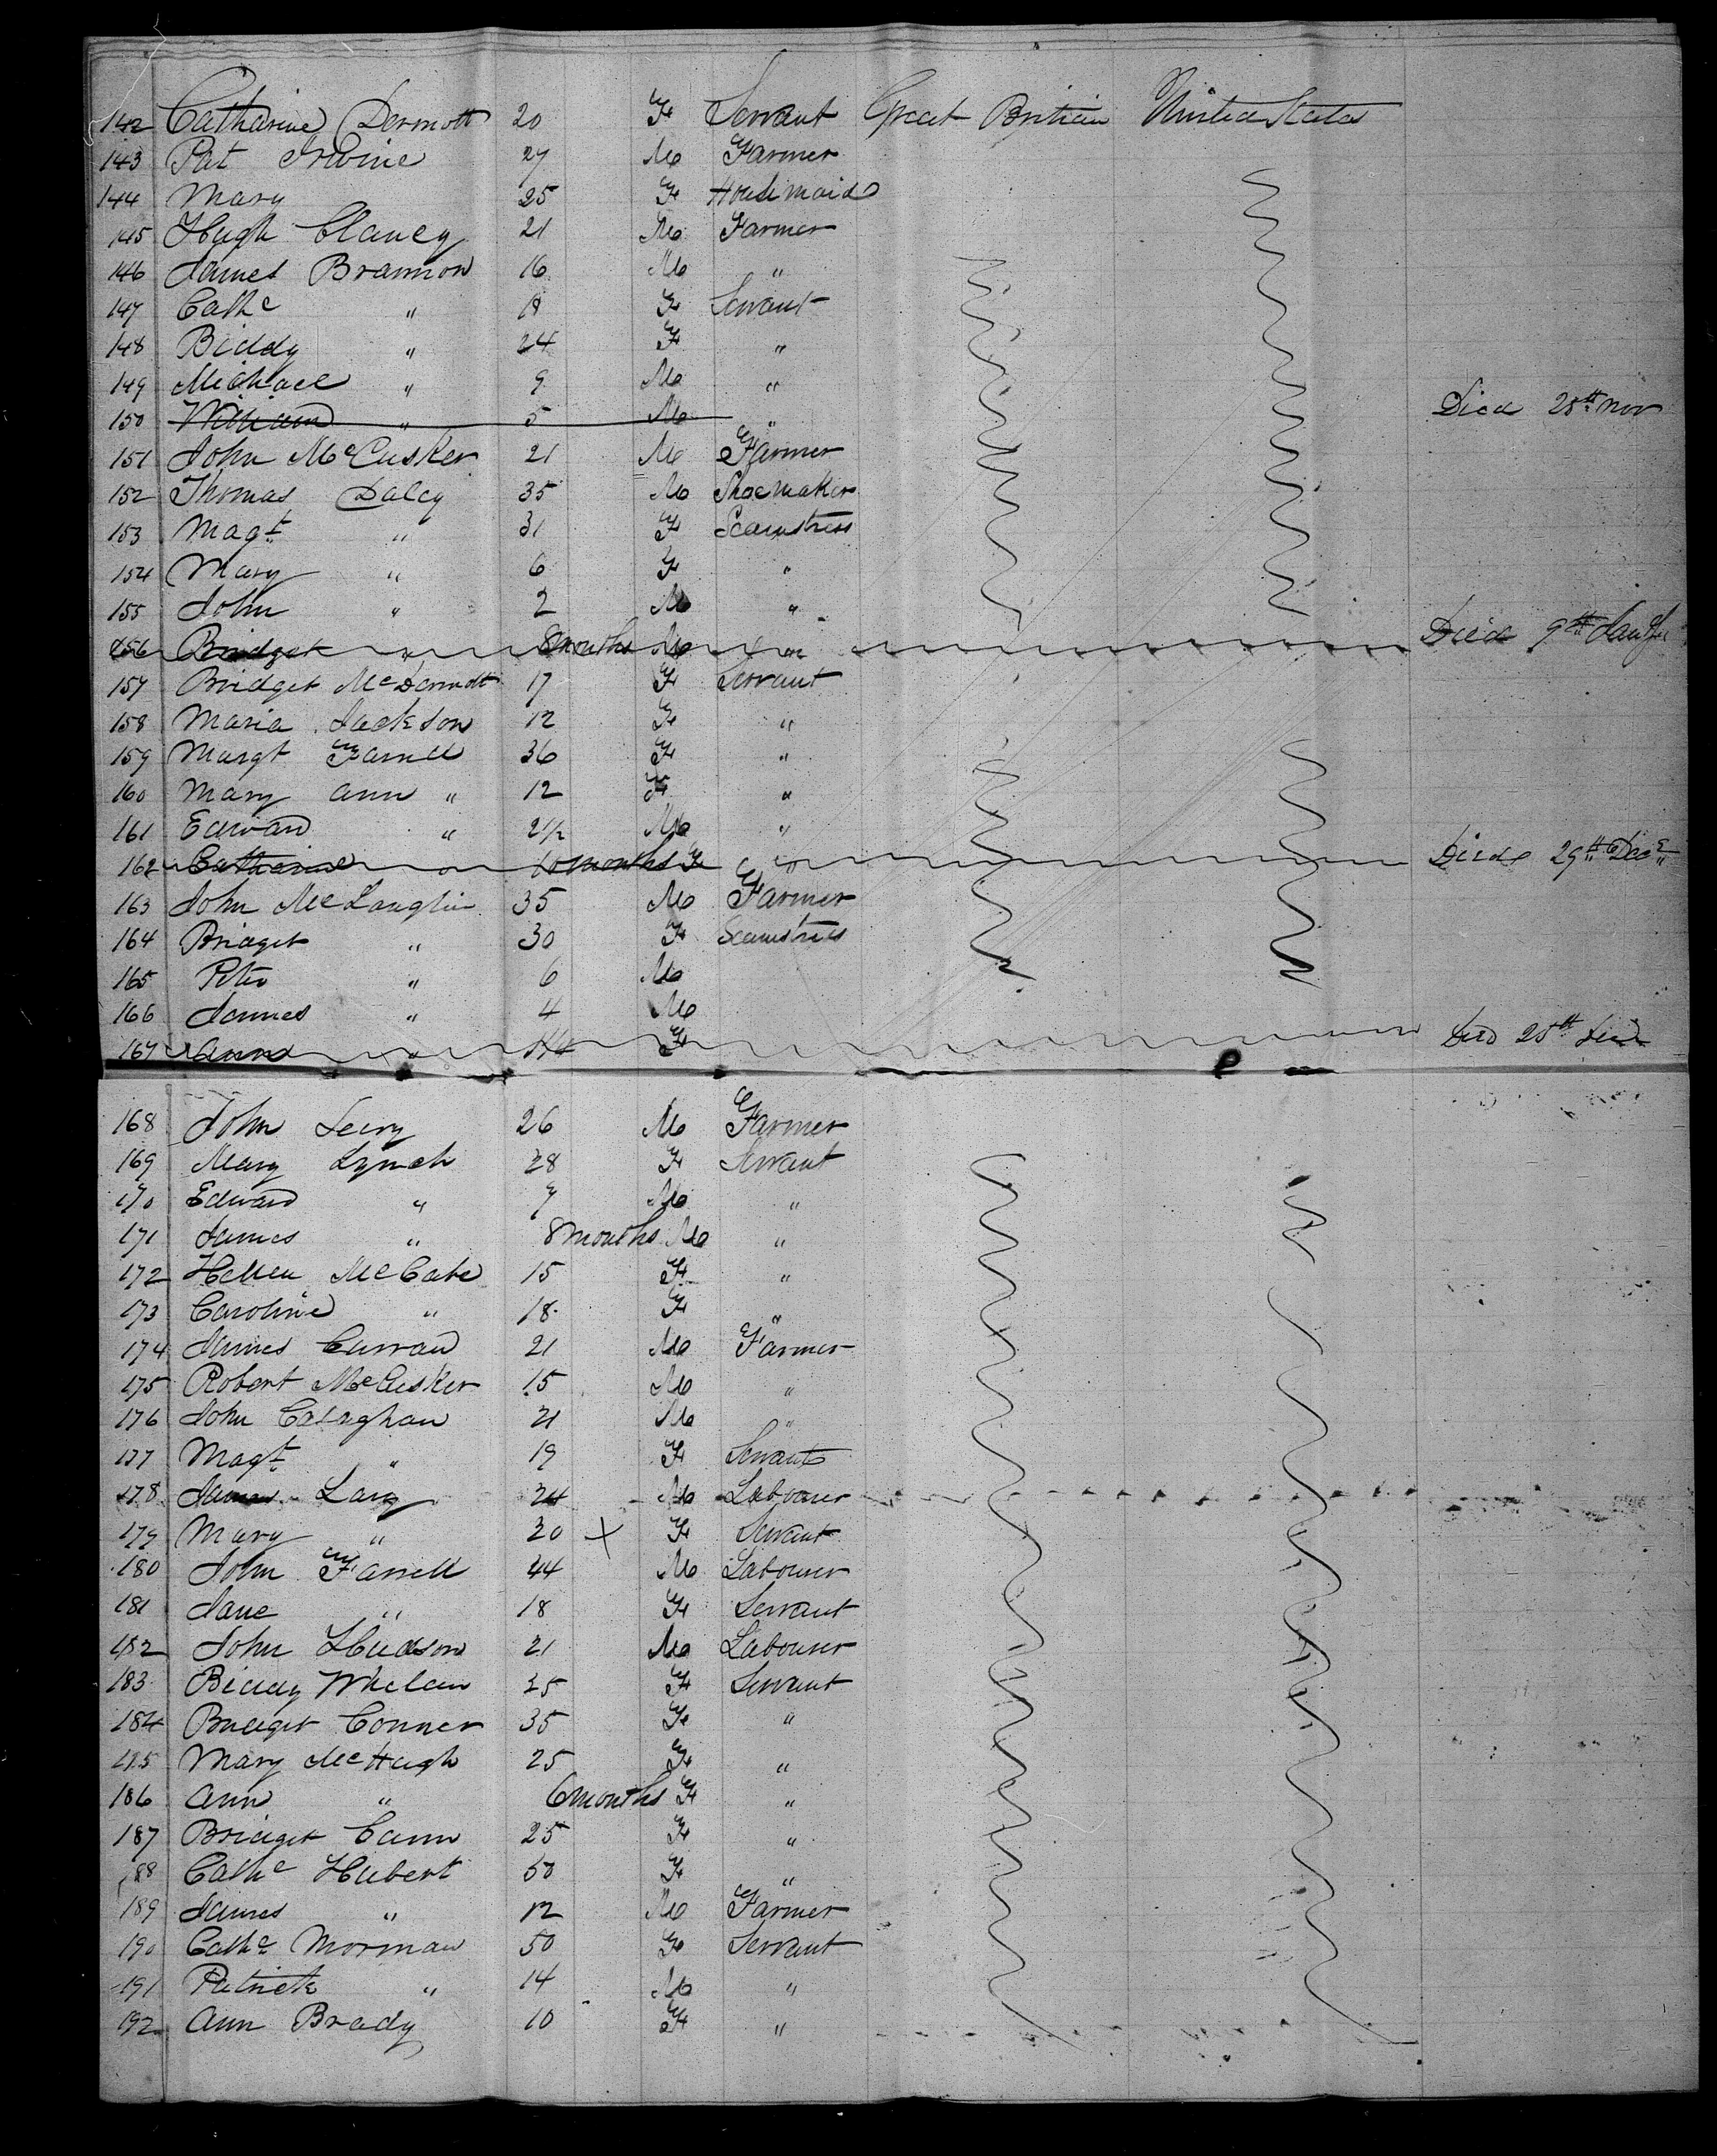 142 Catharine Dermott 20 F Servant Great Britian United States
143 Pat Irvine 27 M Farmer
144 Mary 25 F Housemaid
145 Hugh Clancy 21 M Farmer
146 James Brannon 16 M "
147 Cathe " 18 F Servant
148 Biddy " 24 F "
149 Michael " 9 M "
150 William " 5 M " Died 28th Nov
151 John McCusker 21 M Farmer
152 Thomas Daley 35 M Shoemaker
153 Magt " 31 F Seamstress
154 Mary " 6 F "
155 John " 2 M "
156 Bridget " 8 months M " Died 9th
157 Bridget McDermott 17 F Servant
158 Maria Jackson 12 F "
159 Margt Farrell 36 F "
160 Mary Ann " 12 F "
161 Edward " 2 1/2 M "
162 Catharine " 10 months F " Died 29th Dec
163 John McLauglin 35 M Farmer
164 Bridget " 30 F Seamstress
165 Peter " 6 M
166 James " 4 M
167 Ann " F Died 28th
168 John Leery 26 M Farmer
169 Mary Lynch 28 F Servant
170 Edward " 7 M "
171 James " 8 months M "
172 Hellen McCabe 15 F "
173 Caroline " 18 F "
174 James Curran 21 M Farmer
175 Robert McCusker 15 M "
176 John Calaghan 21 M "
177 Magt " 19 F Servant
178 James Lary 24 M Labourer
179 Mary " 20 X F Servant
180 John Farrell 44 M Labourer
181 Jane " 18 F Servant
182 John Hudson 21 M Labourer
183 Biddy Whelan 25 F Servant
184 Bridget Conner 35 F "
185 Mary McHugh 25 F "
186 Ann " 6 months F "
187 Bridget Cann 25 F "
188 Cathe Hubert 50 F "
189 James " 12 M Farmer
190 Cathe Morman 50 F Servant
191 Patrick " 14 M "
192 Ann Brady 10 F "